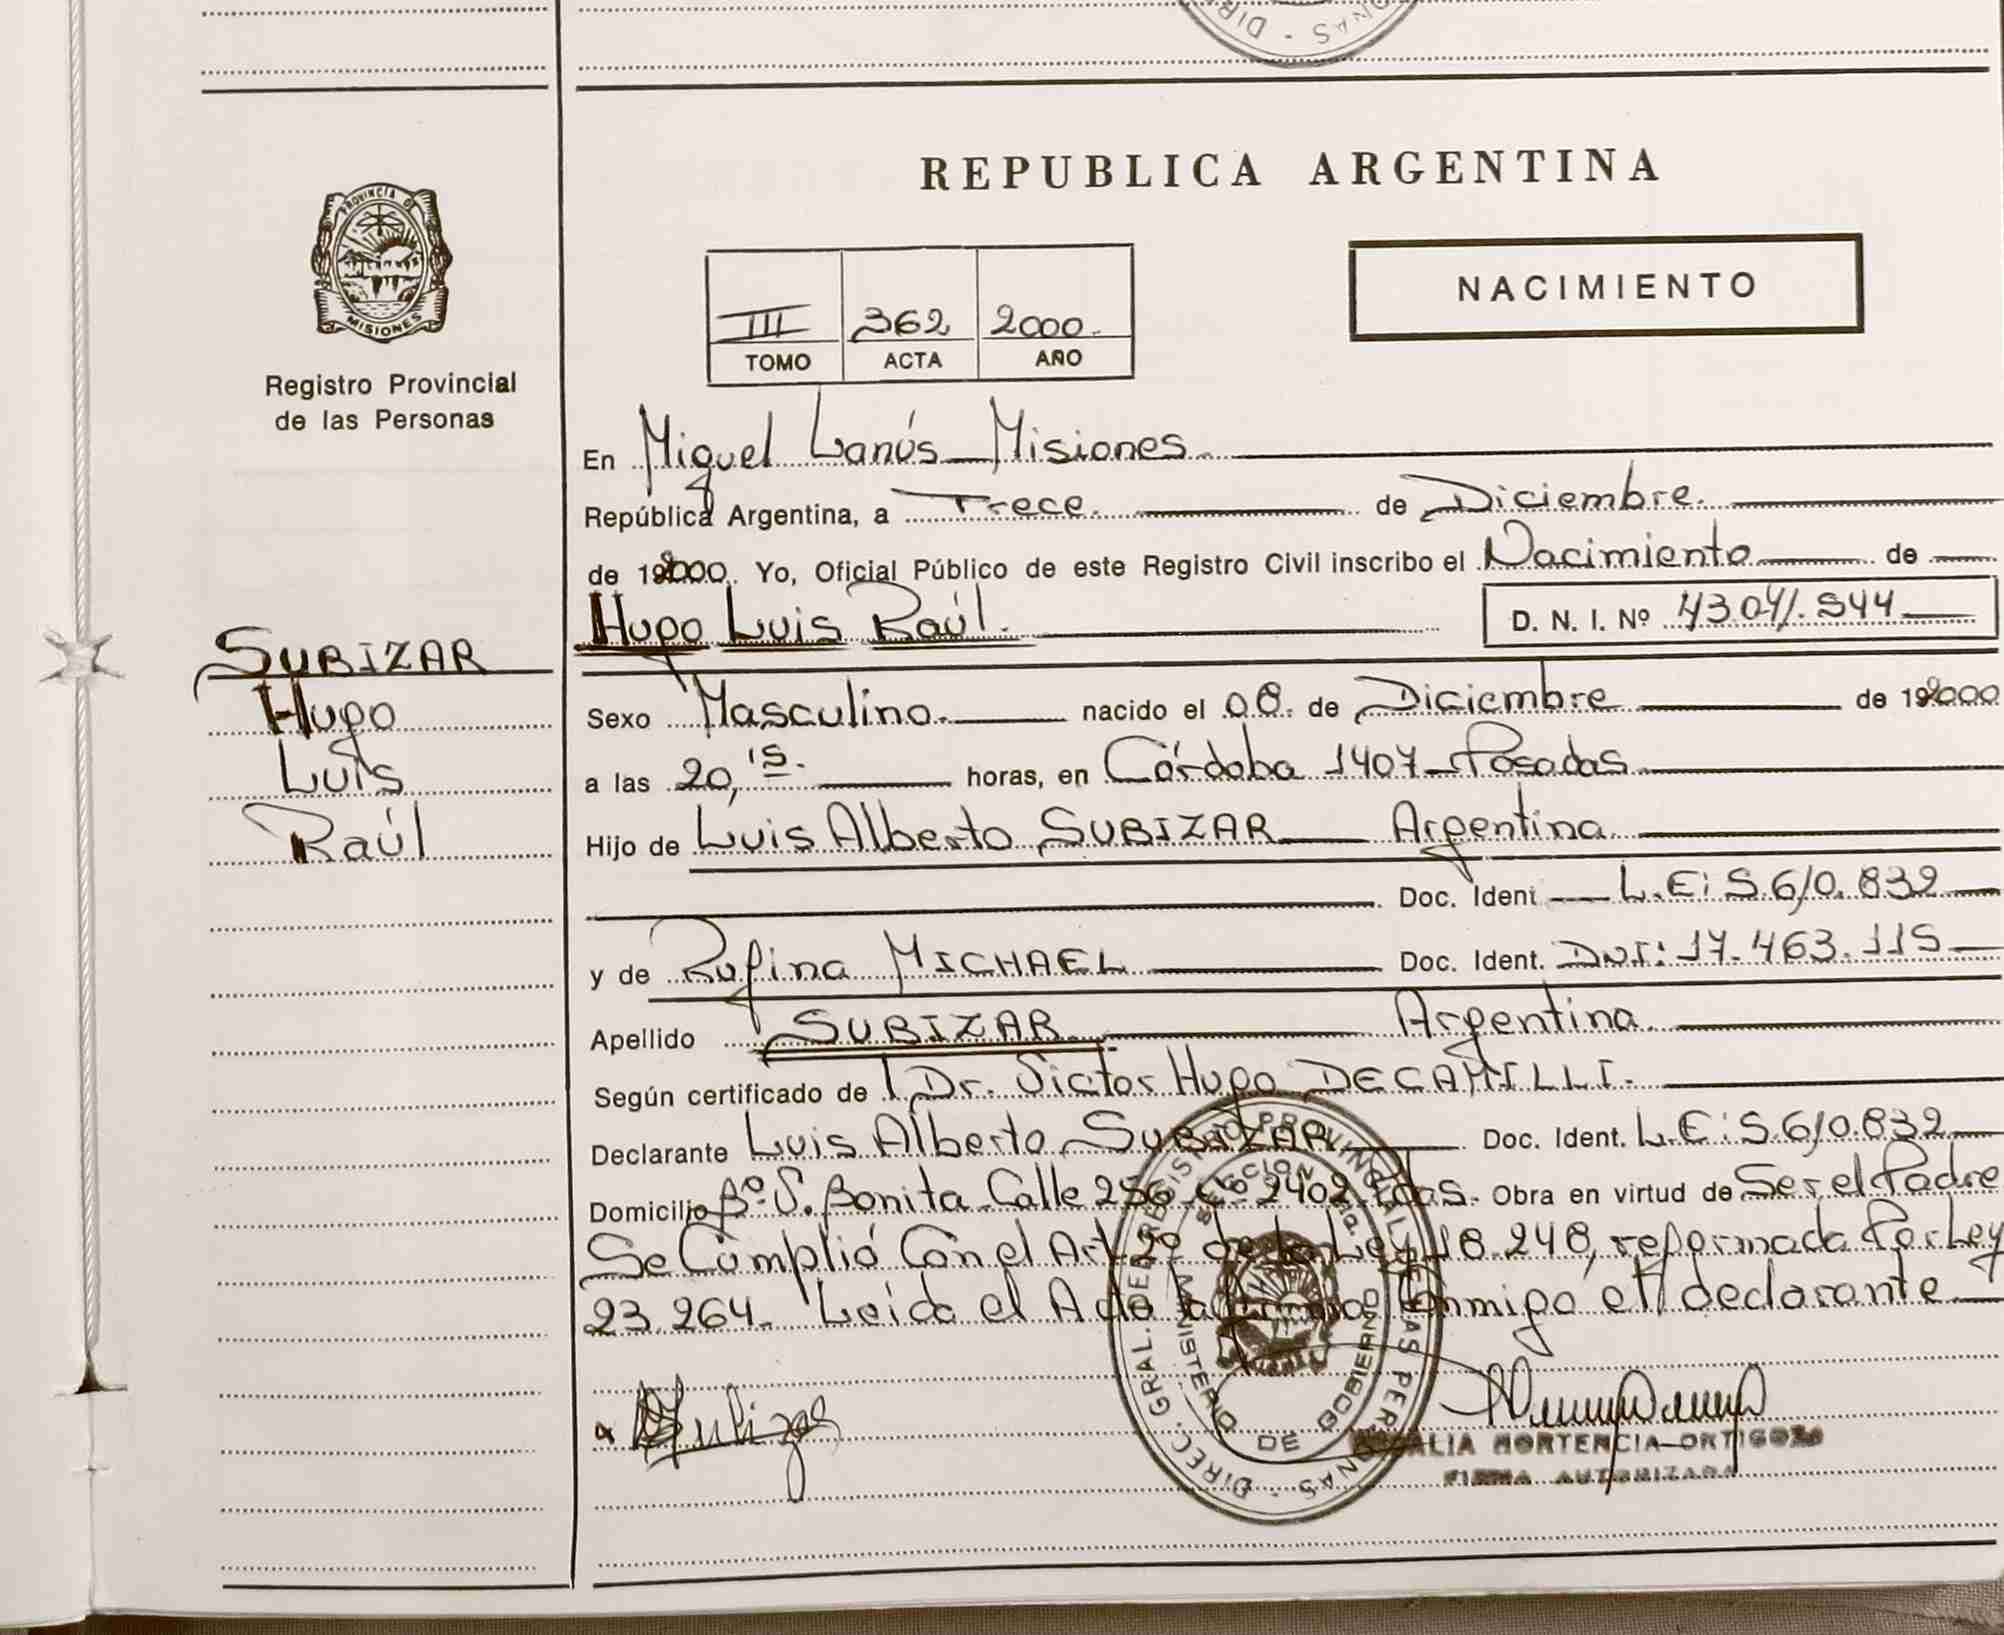 REPUBLICA ARGENTINA
PROVINCIA DE
MISIONES
Registro Provincial
de las Personas
III 362 2000
TOMO ACTA AÑO
NACIMIENTO
En Miguel Lanús Misiones
República Argentina, a Trece de Diciembre
de 2000 Yo, Oficial Público de este Registro Civil inscribo el Nacimiento de
Hugo Luis Raúl. D. N. I. Nº 43.041.944
SUBIZAR
Hugo
Luis
Raúl
Sexo Masculino. nacido el 08. de Diciembre de 2000
a las 20,15. horas, en Córdoba 1407 Posadas
Hijo de Luis Alberto SUBIZAR Argentina
Doc. Ident L.E: 5.610.832
y de Rufina MICHAEL Doc. Ident. DNI: 17.463.115
Apellido SUBIZAR Argentina
Según certificado de Dr. Victor Hugo DECAMILLI.
Declarante Luis Alberto SUBIZAR Doc. Ident. L.E: 5.610.832
Domicilio Bº S. Bonita Calle 256 C. 2402 Pdas. Obra en virtud de Ser el Padre
Se Cumplió Con el Art 2º de la Ley 18.248, reformada Por Ley
23.264. Leida el Acta la firma Conmigo el declarante
Subizar
DIREC. GRAL. DEL REGISTRO PROVINCIAL DE LAS PERSONAS
MINISTERIO DE GOBIERNO
HORTENCIA ORTIGOZA
FIRMA AUTORIZADA